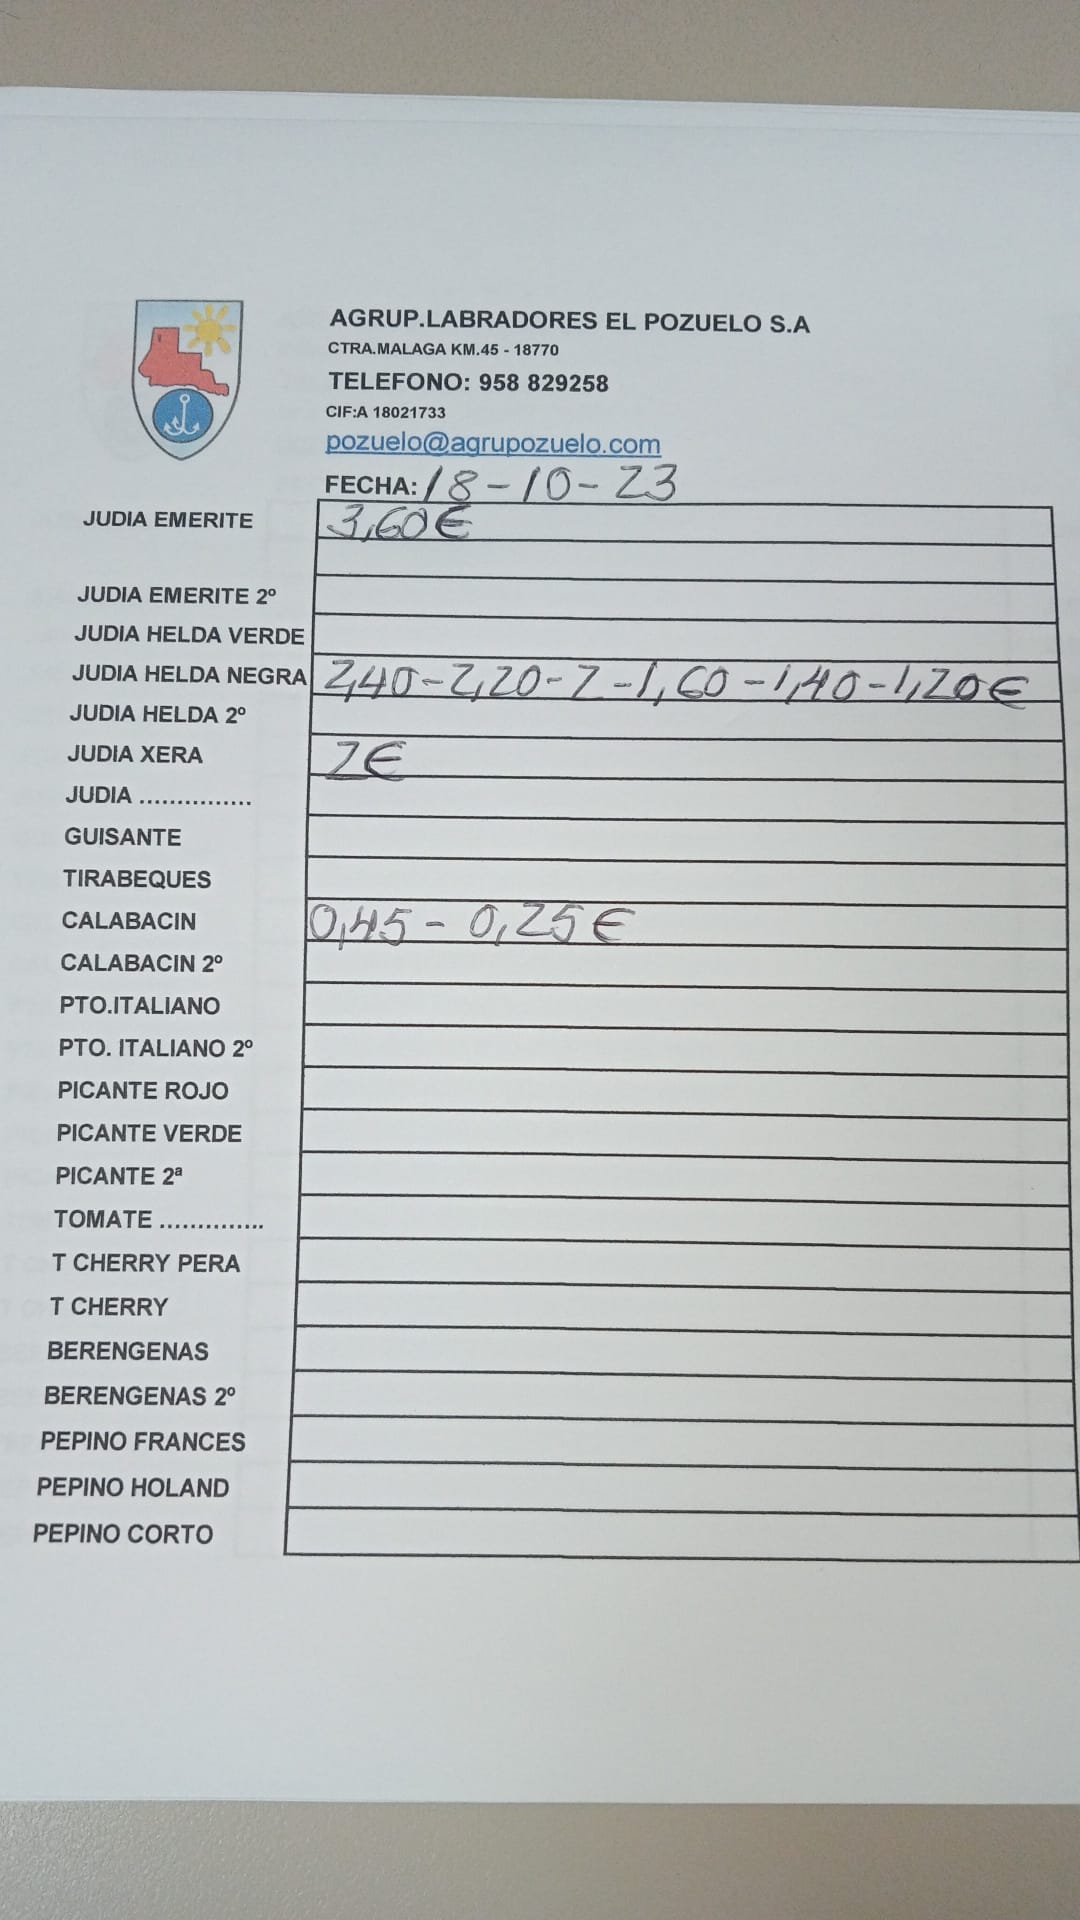 AGRUP.LABRADORES EL POZUELO S.A
CTRA.MALAGA KM.45 - 18770
TELEFONO: 958 829258
CIF:A 18021733
pozuelo@agrupozuelo.com
FECHA: 18-10-23
JUDIA EMERITE 3,60€
JUDIA EMERITE 2º
JUDIA HELDA VERDE
JUDIA HELDA NEGRA 2,40-2,20-2-1,60-1,40-1,20€
JUDIA HELDA 2º
JUDIA XERA 2€
JUDIA ...............
GUISANTE
TIRABEQUES
CALABACIN 0,45 - 0,25€
CALABACIN 2º
PTO.ITALIANO
PTO. ITALIANO 2º
PICANTE ROJO
PICANTE VERDE
PICANTE 2ª
TOMATE ..............
T CHERRY PERA
T CHERRY
BERENGENAS
BERENGENAS 2º
PEPINO FRANCES
PEPINO HOLAND
PEPINO CORTO